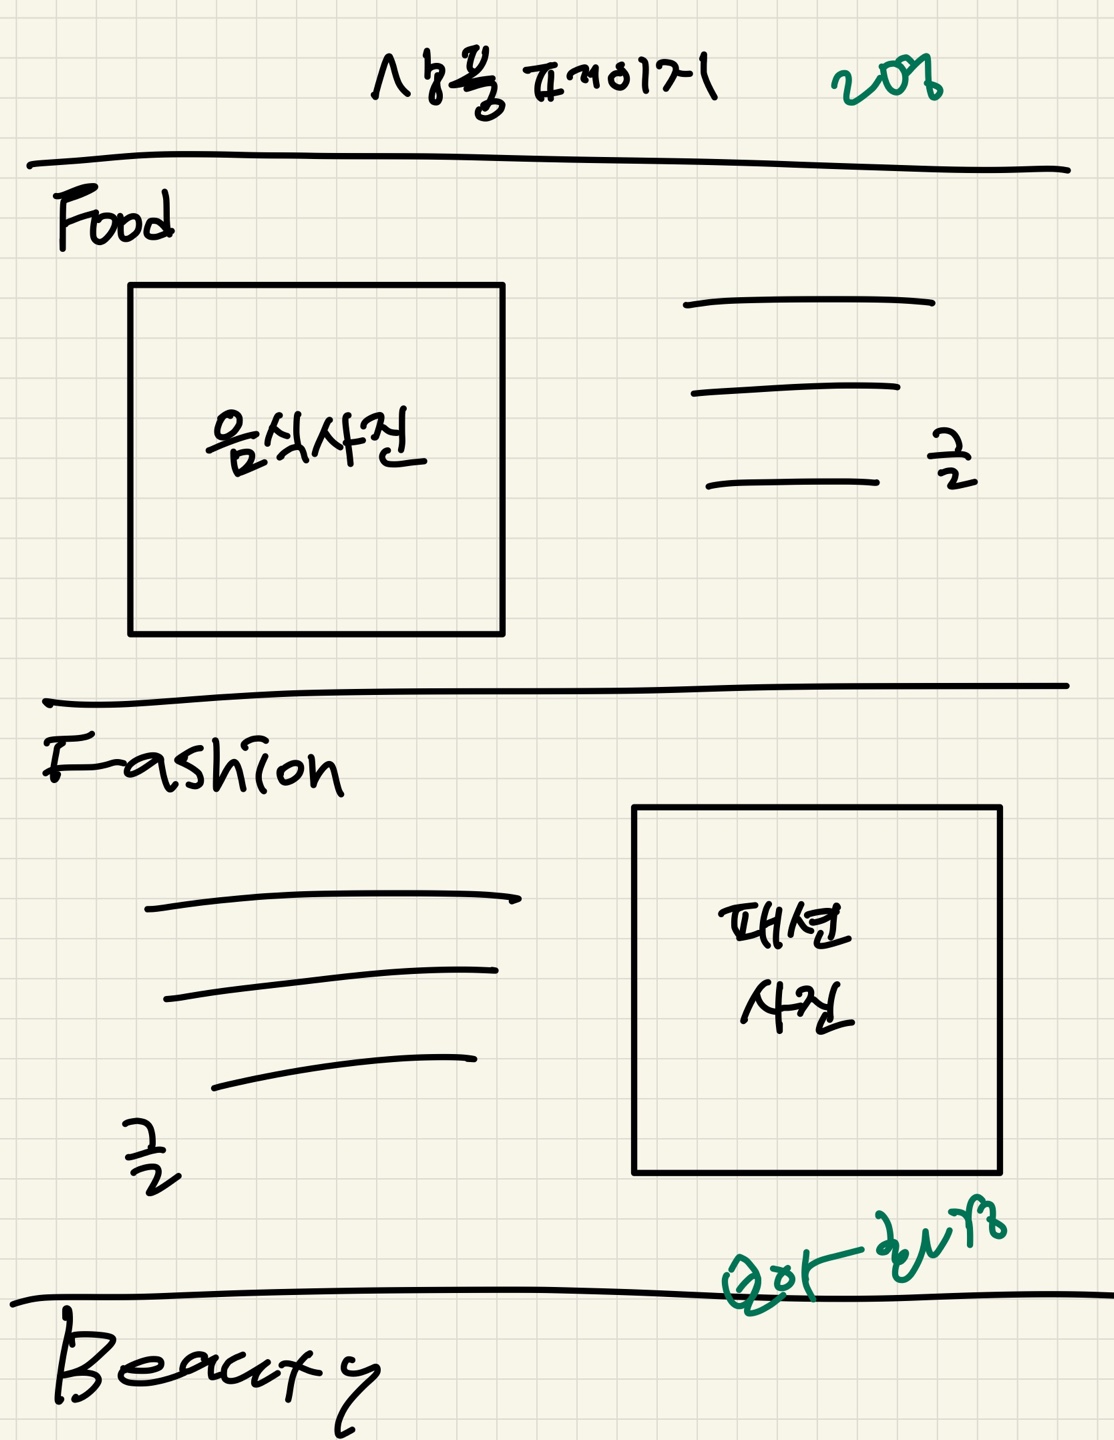 상품 페이지
Food
음식사진
글
Fashion
패션
사진
글
Beauty